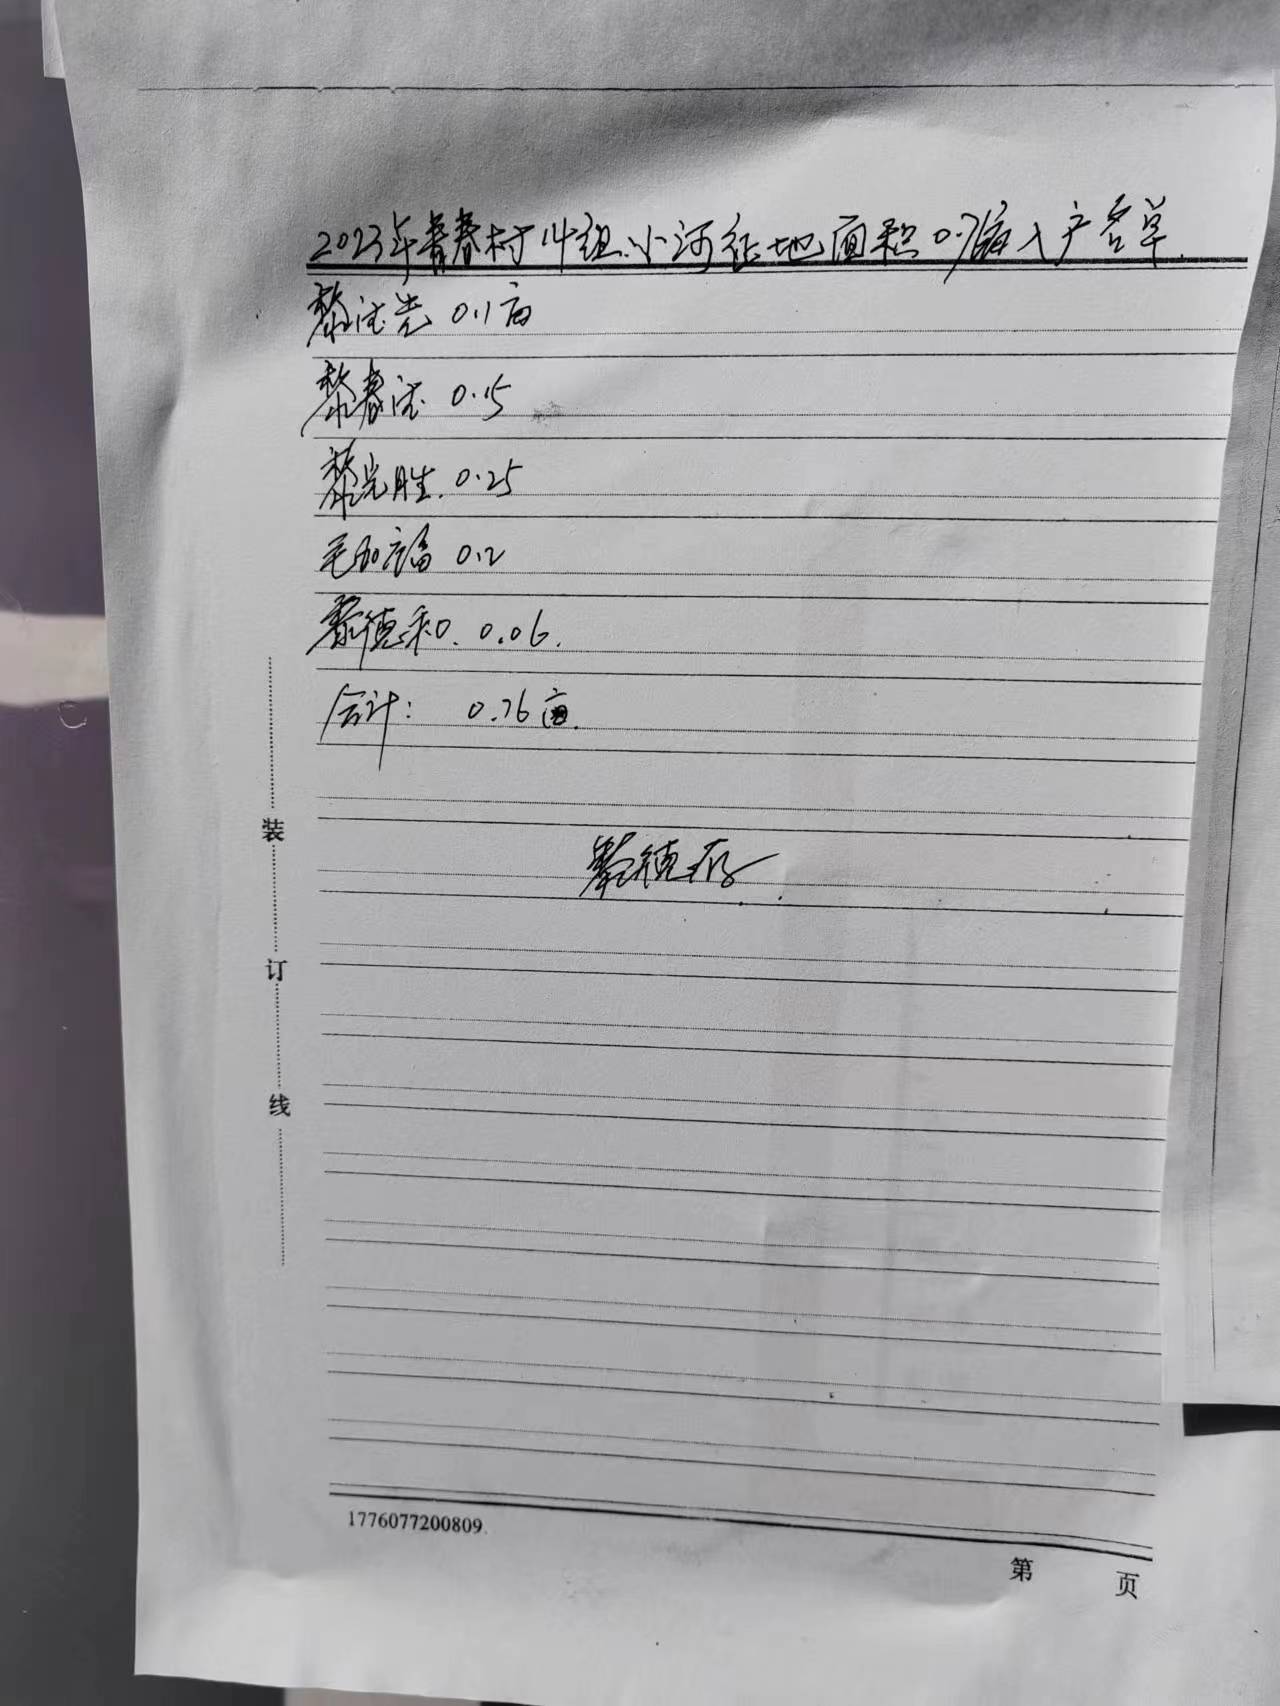 2023年青春村14组小河征地面积0.76亩入户名单
黎法先 0.1亩
黎春法 0.15
黎完胜 0.25
毛加福 0.2
黎德和 0.06
合计: 0.76亩
黎德存
装
订
线
1776077200809
第 页